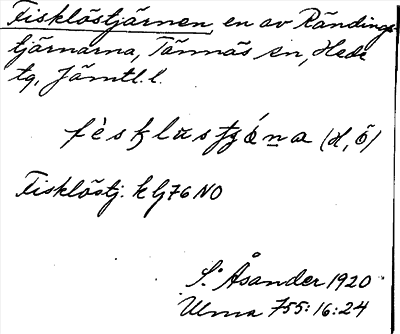 Fisklöstjärnen, en av Rändings-
tjärnarna, Tännäs sn, Hede
tg, Jämtl. l.
(H, Ö)
Fisklöstj. k Lj 76 NO
S. Åsander 1920
Ulma 755:16:24